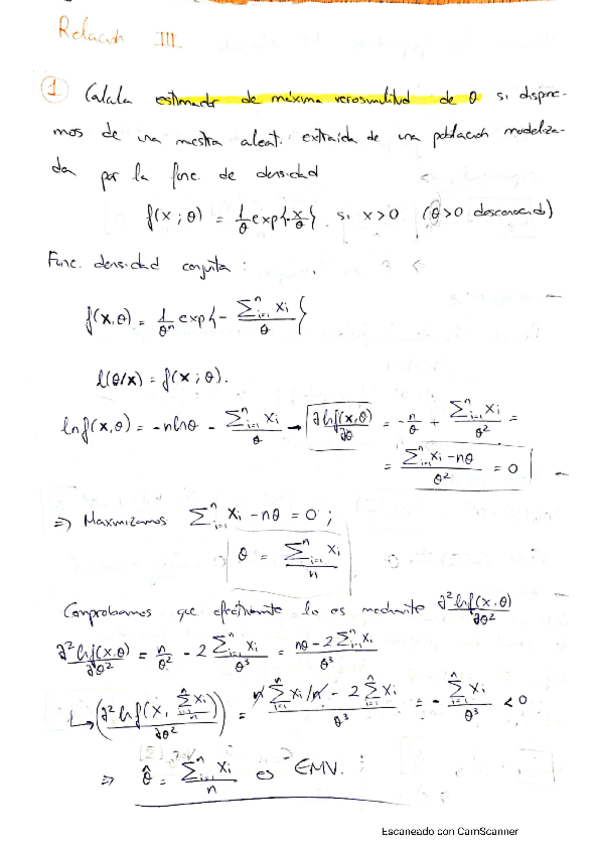 Relación III.
1 Calcula estimador de máxima verosimilitud de θ si dispone-
mos de una muestra aleat. extraída de una población modeliza-
da por la func. de densidad
f(x;θ) = 1/θ exp{-x/θ} si x>0 (θ>0 desconocido)
Func. densidad conjunta:
f(x,θ) = 1/θⁿ exp{- ∑ᵢ₌₁ⁿ xᵢ / θ}
l(θ/x) = f(x;θ).
ln f(x,θ) = -n ln θ - ∑ᵢ₌₁ⁿ xᵢ / θ → ∂ ln f(x,θ)/∂θ = -n/θ + ∑ᵢ₌₁ⁿ xᵢ / θ² =
= (∑ᵢ₌₁ⁿ xᵢ - nθ) / θ² = 0
⇒ Maximizamos ∑ᵢ₌₁ⁿ xᵢ - nθ = 0 ;
θ = ∑ᵢ₌₁ⁿ xᵢ / n
Comprobamos que efectivamente lo es mediante ∂² ln f(x,θ)/∂θ²
∂² ln f(x,θ)/∂θ² = n/θ² - 2 ∑ᵢ₌₁ⁿ xᵢ / θ³ = (nθ - 2∑ᵢ₌₁ⁿ xᵢ) / θ³
↳ (∂² ln f(x, ∑ᵢ₌₁ⁿ xᵢ / n) / ∂θ²) = (n ∑ᵢ₌₁ⁿ xᵢ/n - 2 ∑ᵢ₌₁ⁿ xᵢ) / θ³ = - ∑ᵢ₌₁ⁿ xᵢ / θ³ < 0
⇒ θ̂ = ∑ᵢ₌₁ⁿ xᵢ / n es EMV.
Escaneado con CamScanner